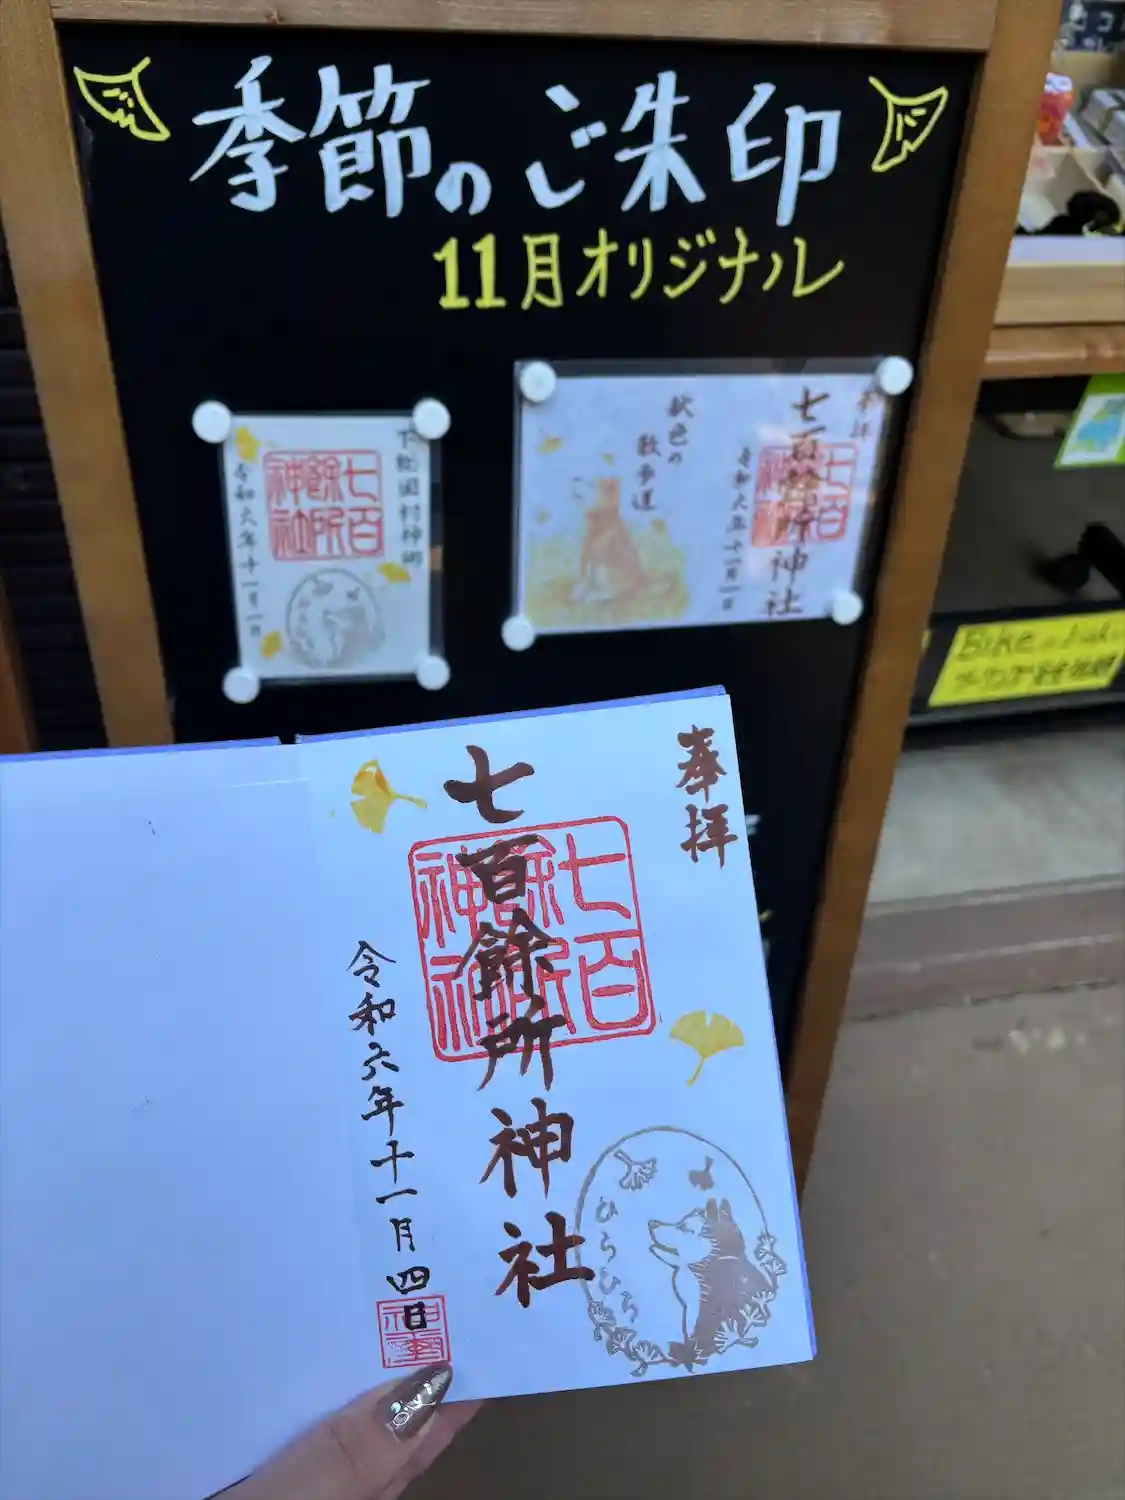 季節のご朱印
11月オリジナル
下総国村神郷
七百餘所神社
令和六年十一月一日
奉拝
七百餘所神社
七百餘所神社
令和六年十一月一日
秋色の
散歩道
Bike
奉拝
七百餘所神社
七百餘所神社
令和六年十一月四日
ひらひら